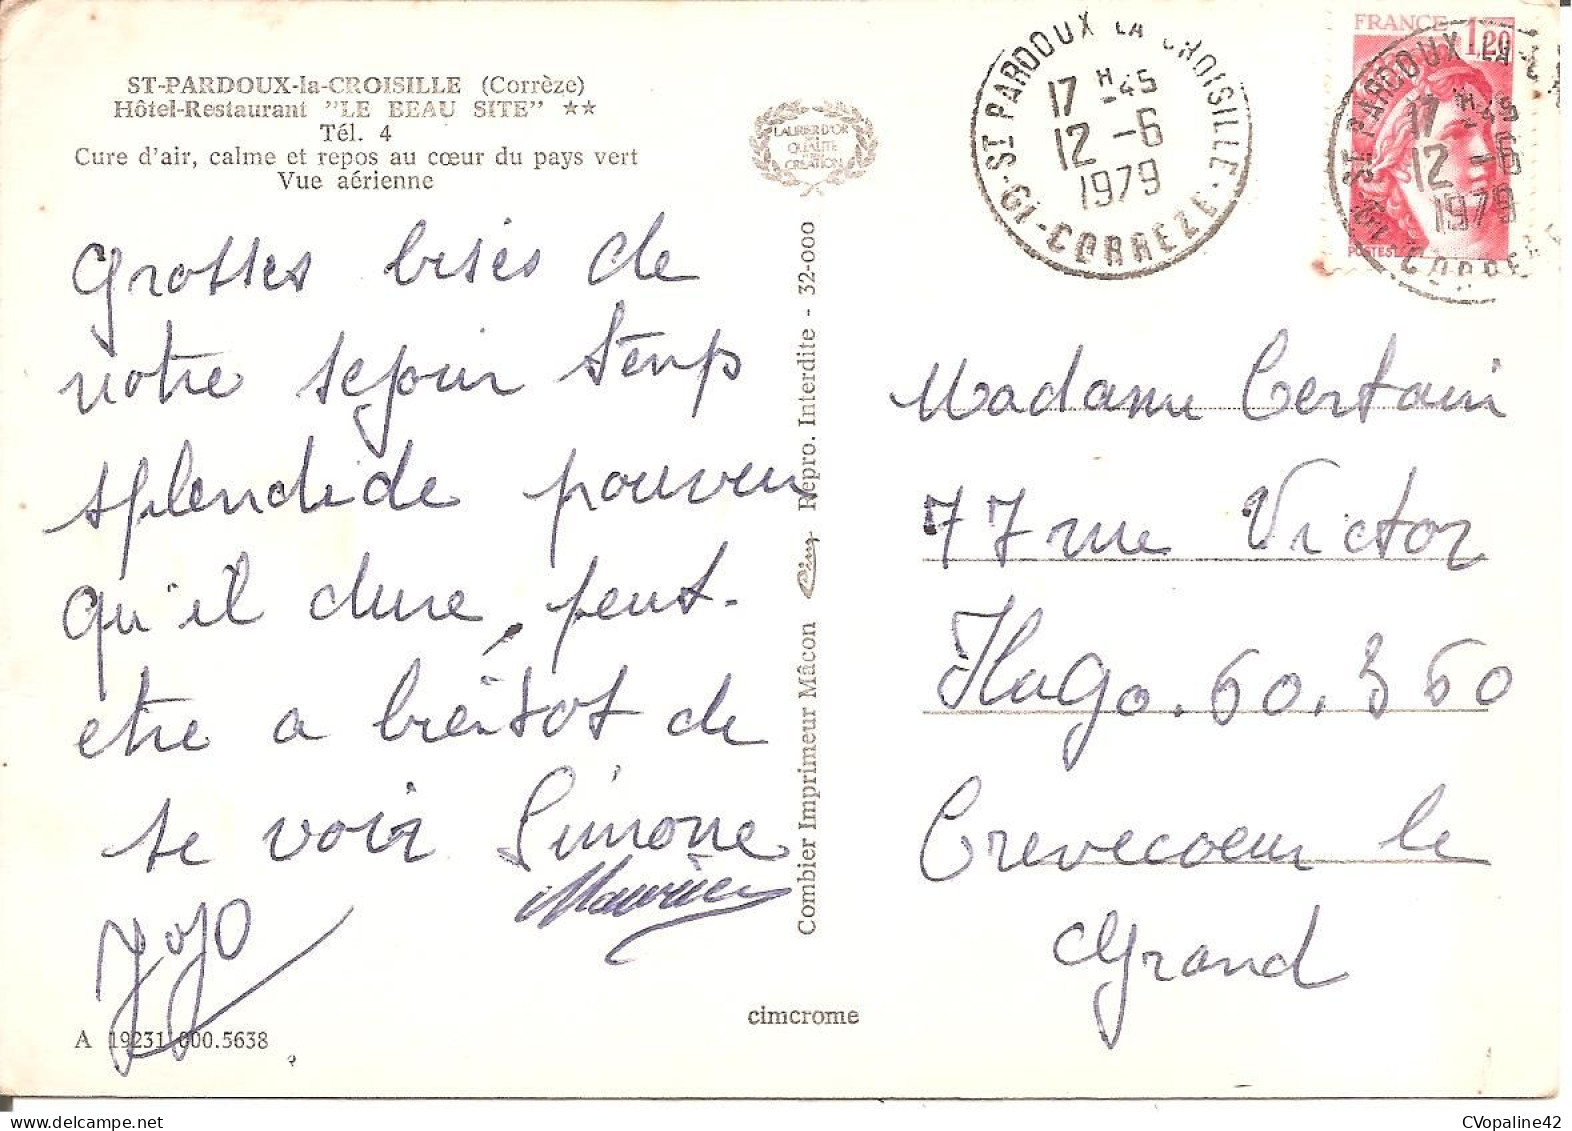 ST-PARDOUX-la-CROISILLE (Corrèze)
Hôtel-Restaurant "LE BEAU SITE" ★★
Tél. 4
Cure d'air, calme et repos au cœur du pays vert
Vue aérienne
LAURIER D'OR
DE LA
QUALITÉ
CRÉATION
Grosses bises de
notre sejour temp
splendide pourvu
qu'il dure, peut-
etre a bientot de
se voir Simone
Maurice
Jojo
A 19231 000.5638
Combier Imprimeur Mâcon Cim Repro. Interdite - 32-000
cimcrome
ST PARDOUX LA CROISILLE
17 H 45
12 -6
1979
19 - CORREZE
FRANCE 1,20
POSTES
ST PARDOUX LA
17 H 45
12 -6
1979
19 CORREZE
Madame Certain
77 rue Victor
Hugo. 60.360
Crevecoeur le
Grand
CVopaline42